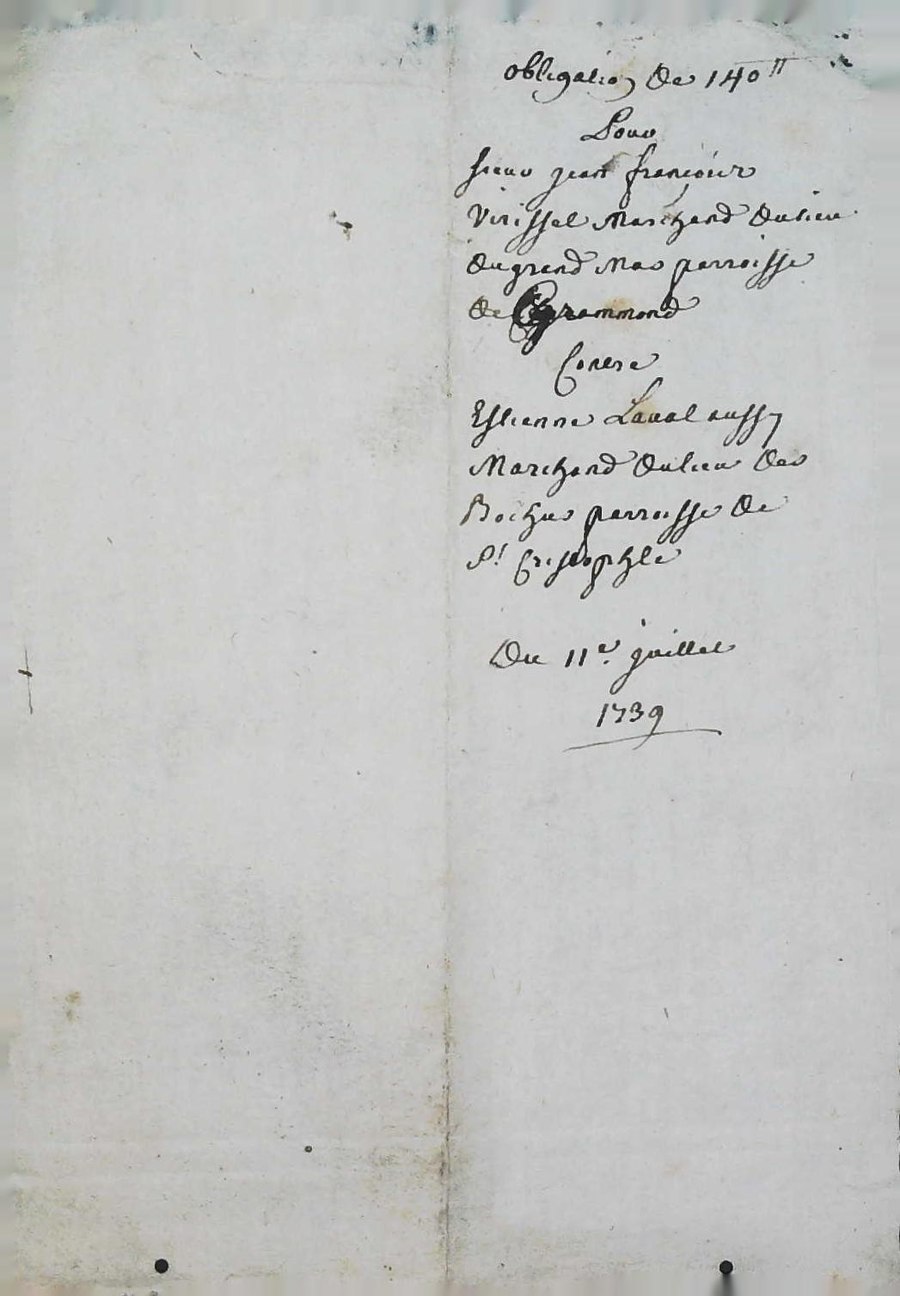 obligation de 140 ll
Pour
sieur jean françois
Virissel Marchand du lieu
du grand Mas parroisse
de grammond
Contre
Estienne Laval aussy
Marchand du lieu des
Roches parroisse de
St Cristophle
Du 11e juillet
1739